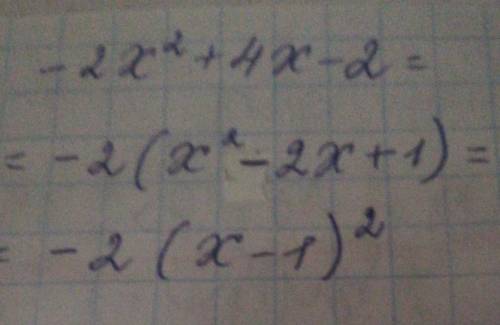 -2x² + 4x - 2 =
= -2(x² - 2x + 1) =
= -2(x - 1)²